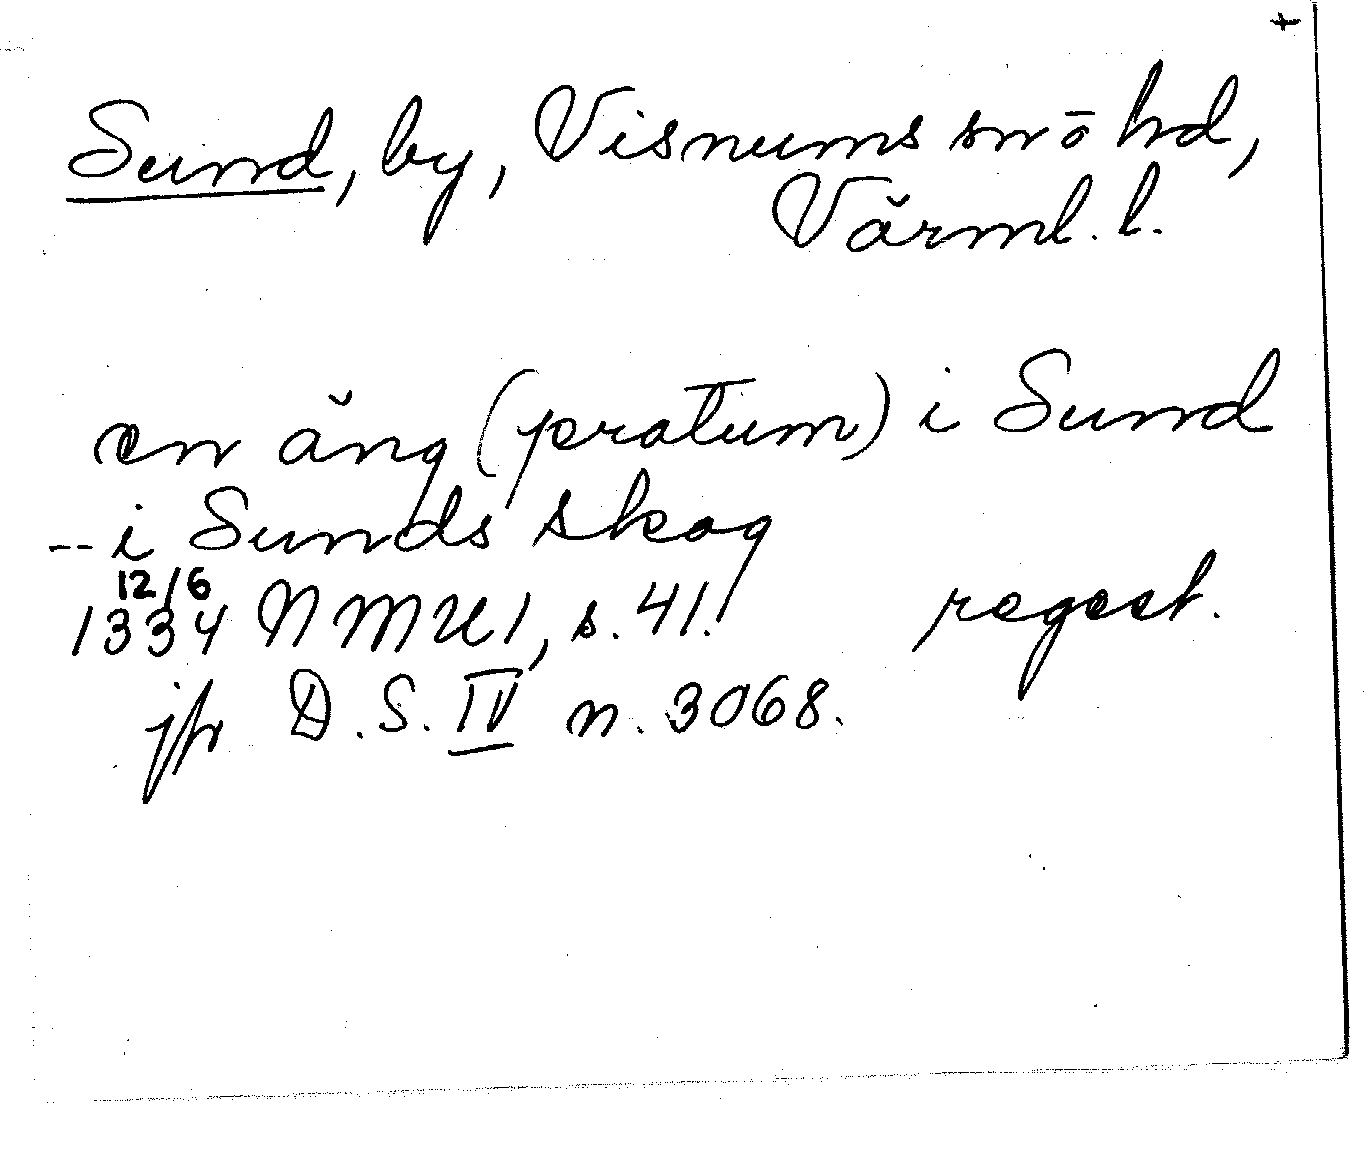 +
Sund, by, Visnums sn o hd,
Värml. l.
en äng (pratum) i Sund
-- i Sunds skog
12/6
1334 NMU 1, s. 41. regest.
jfr D.S. IV n. 3068.